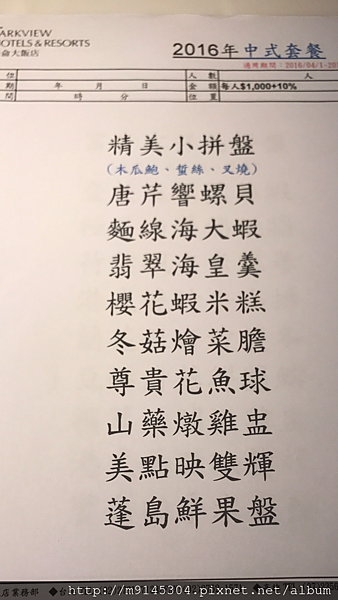 PARKVIEW
HOTELS & RESORTS
大飯店
2016年中式套餐
適用期間：2016/04/1-20
位 人數 人
期 年 月 日 金額 每人$1,000+10%
間 時 分 位置
精美小拼盤
（木瓜鮑、蜇絲、叉燒）
唐芹響螺貝
麵線海大蝦
翡翠海皇羹
櫻花蝦米糕
冬菇燴菜膽
尊貴花魚球
山藥燉雞盅
美點映雙輝
蓬島鮮果盤
店業務部 ◆台
http://m9145304.pixnet.net/album